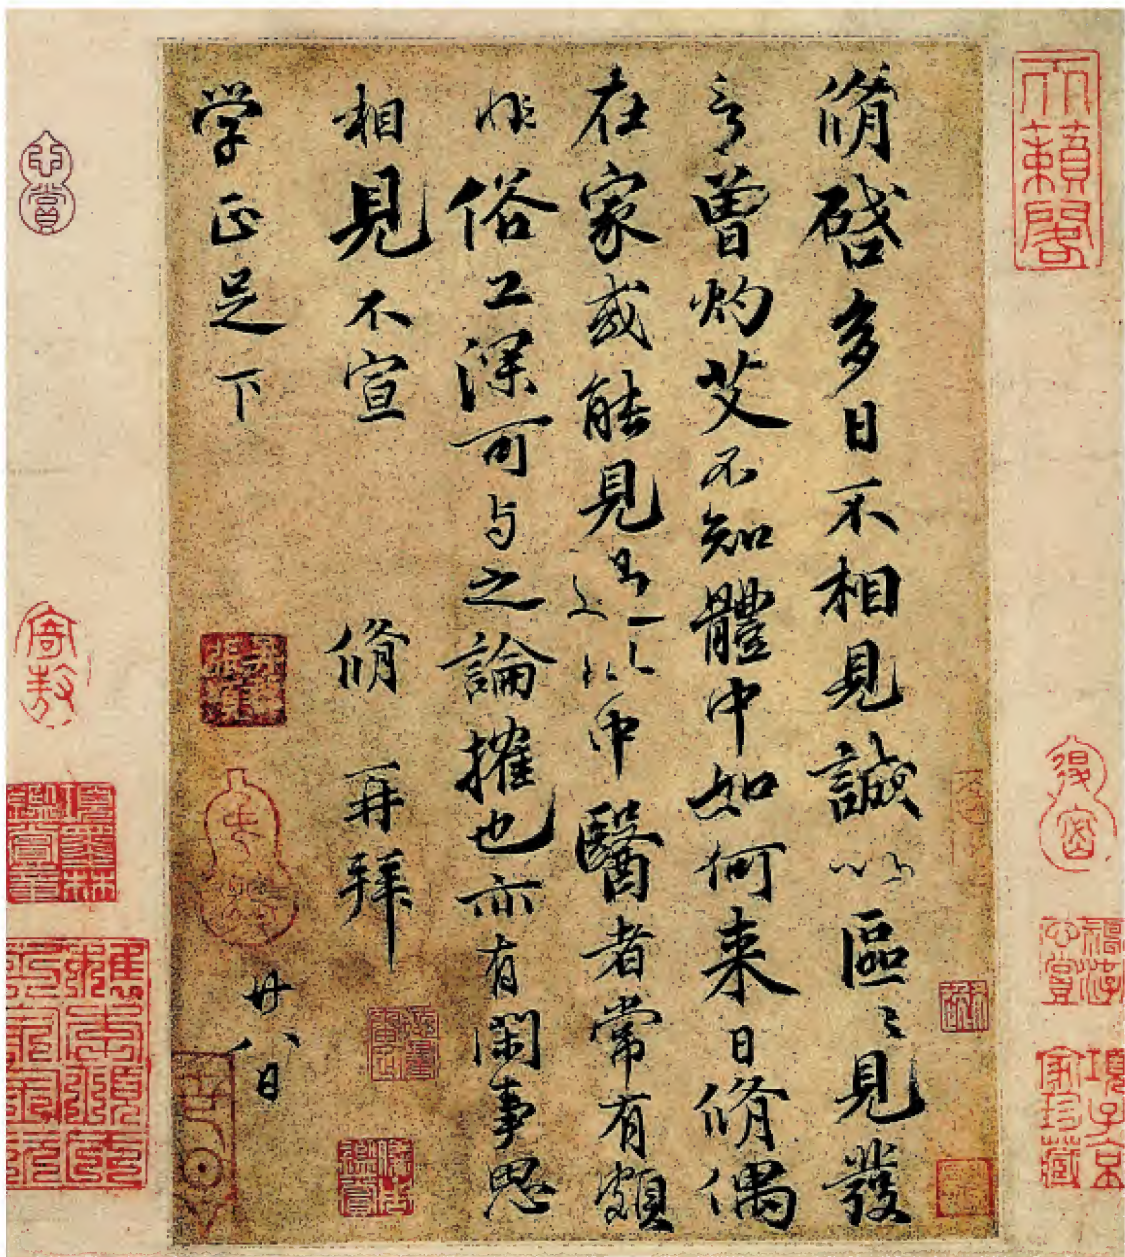 天籟閣
脩啓多日不相見誠以區〻見發
言曾灼艾不知體中如何来日脩偶
在家或能見過此中醫者常有頗
非俗工深可与之論搉也亦有閑事思
相見不宣 脩再拜
学正足下
廿八日
項子京家珍藏
心賞